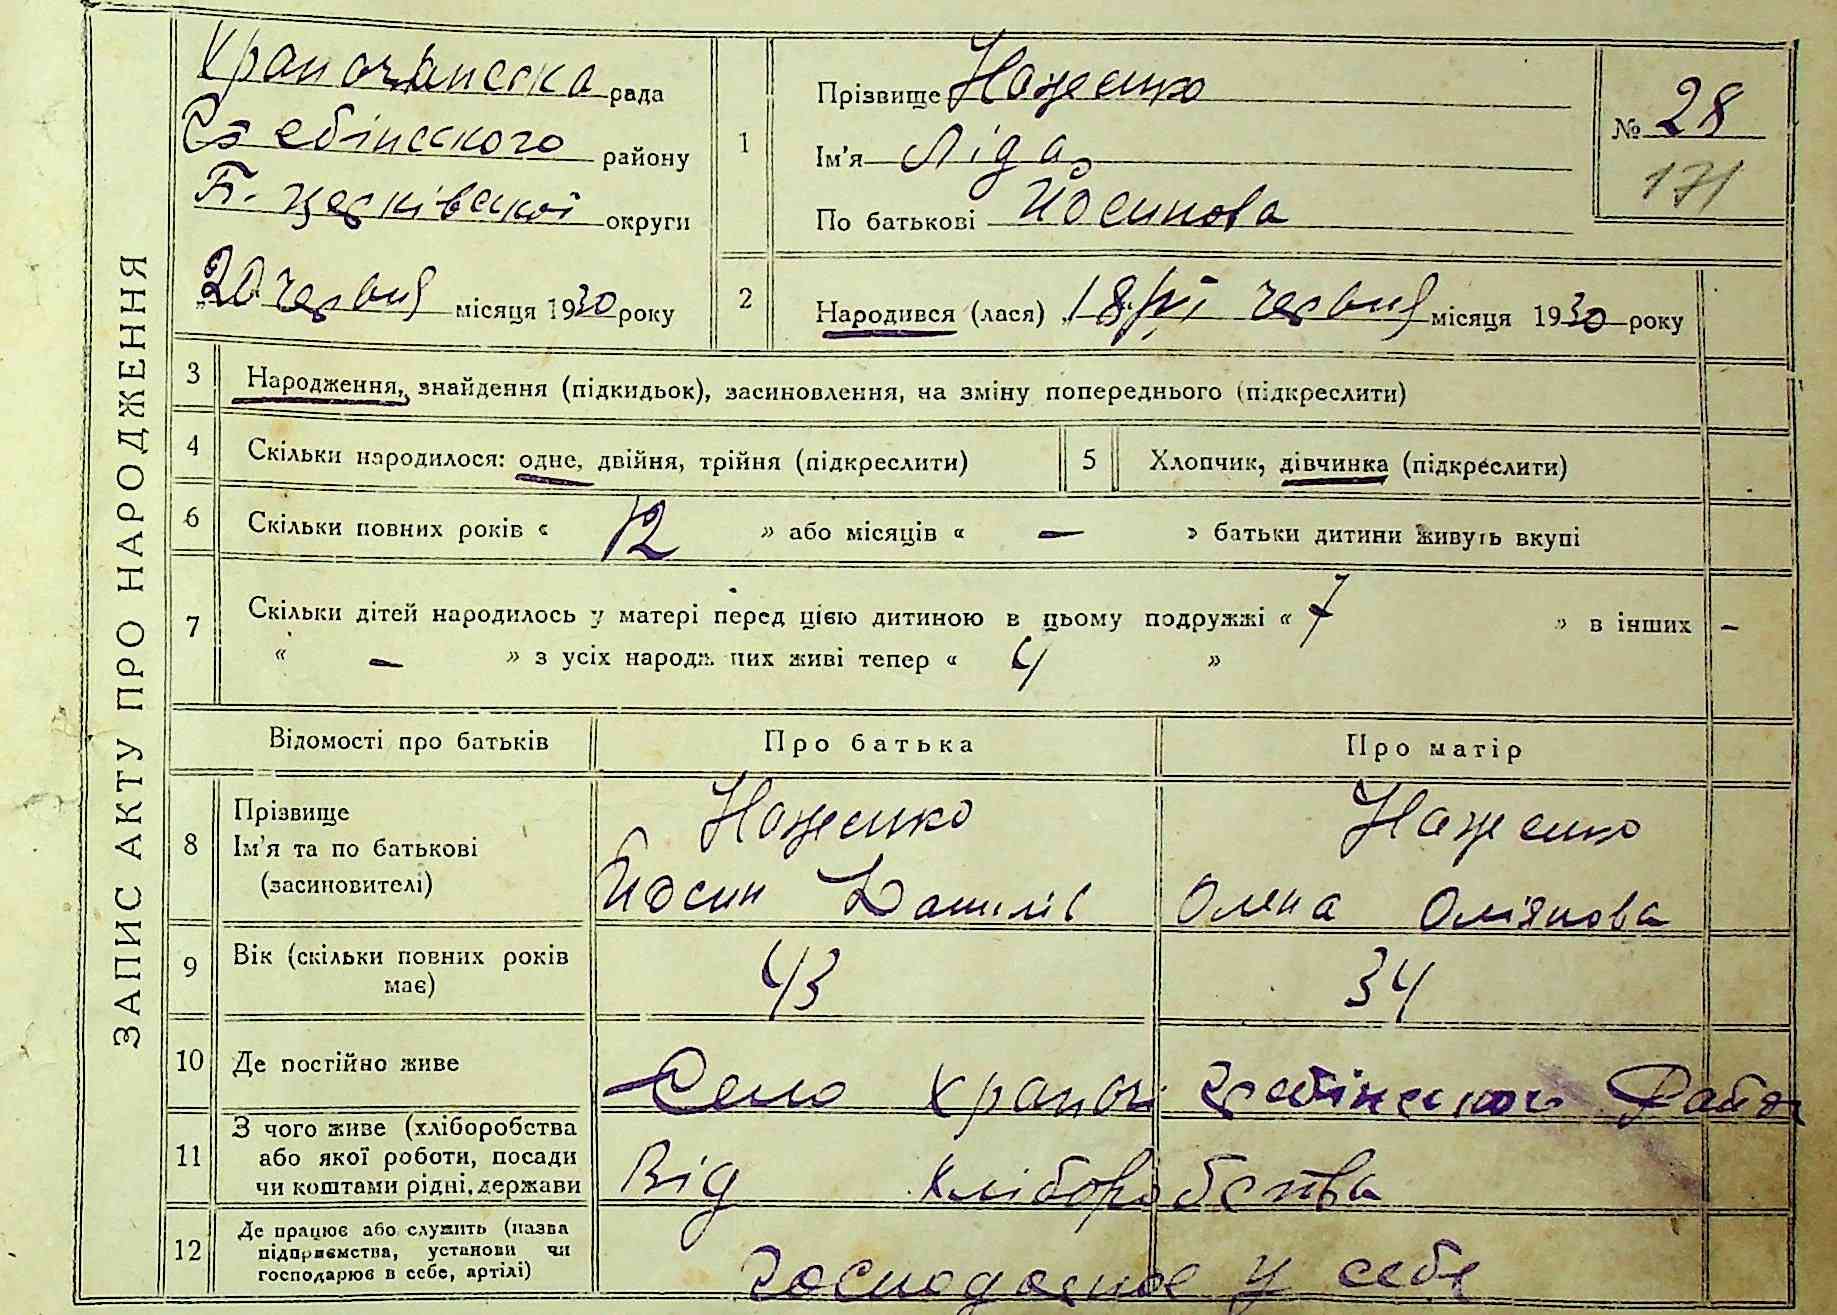 ЗАПИС АКТУ ПРО НАРОДЖЕННЯ
рада
району
Б. Церківської округи
20 червня місяця 1930 року
1
Прізвище Наценко
Ім'я Ліда
По батькові Йосипова
№ 28
171
2
Народився (лася) 18/VI червня місяця 1930 року
3
Народження, знайдення (підкидьок), засиновлення, на зміну попереднього (підкреслити)
4
Скільки народилося: одне, двійня, трійня (підкреслити)
5
Хлопчик, дівчинка (підкреслити)
6
Скільки повних років « 12 » або місяців « — » батьки дитини живуть вкупі
7
Скільки дітей народилось у матері перед цією дитиною в цьому подружжі « 7 » в інших —
« — » з усіх народж них живі тепер « 4 »
Відомості про батьків
Про батька
Про матір
8
Прізвище
Ім'я та по батькові
(засиновителі)
Наценко
Йосип Данилів
Наценко
Олена Омʼянова
9
Вік (скільки повних років
має)
43
34
10
Де постійно живе
Село Храпачі Район
11
З чого живе (хліборобства
або якої роботи, посади
чи коштами рідні, держави
Від хліборобства
12
Де працює або служить (назва
підприємства, установи чи
господарює в себе, артілі)
Господарює у себе